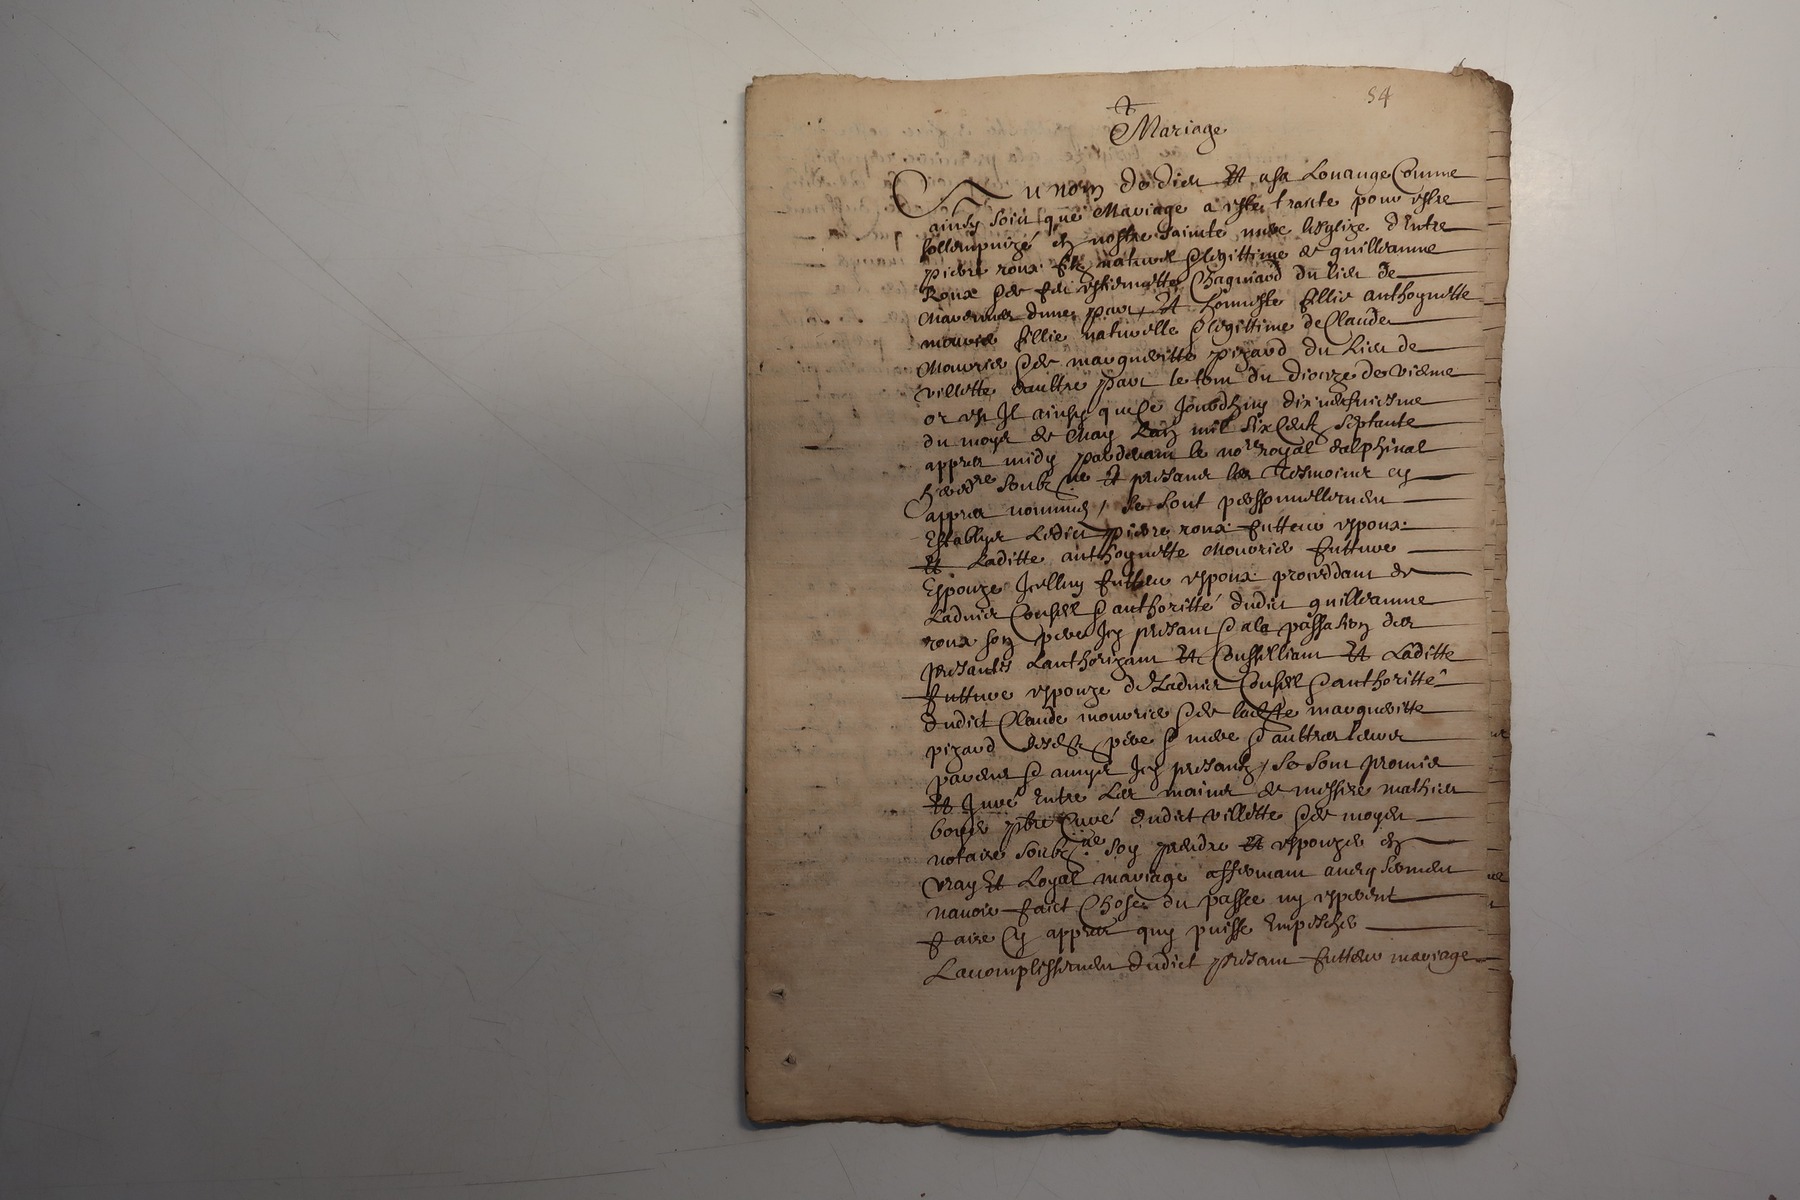 54
Mariage
Au nom de dieu Et a sa Louange Comme
ainsy soict que Mariage a este traicte pour estre
sollempnizé en nostre sainte mere lesglize d'Entre
pierre roux filz naturel & legittime de guilleaume
Roux & de feu estiennette Chagniard du lieu de
dune part Et honneste fillie anthoynette
mourier fillie naturelle & legittime de Claude
Mourier & de margueritte pizard du Lieu de
villette daultre part le tout du dioceze de vienne
or est Il ainsy que Ce Jourdhuy dixneufviesme
du moys de May Lan mil six Centz septante
appres midy pardevant le nore royal dalphinal
heredre soubzne Et presans les Tesmoins cy
appres nommes / se sont personnellement
Establys Ledict pierre roux futteur espoux
Et Laditte anthoynette Mourier futture
Espouze Icelluy futteur espoux proceddant de
Ladvis Conseil & authoritté dudict guilleaume
roux son pere Icy presant & a la passation des
presantes Lauthorizant Et Conseilliant Et Laditte
futture espouze de Ladvis Conseil & authoritté
dudict Claude mourier & de laditte margueritte
pizard ses pere & mere & aultres leurs
parens & amys Icy presantz / se sont promis
Et Juré Entre Les mains de messire mathieu
pbre Curé dudict villette & de moydit
notaire soubzne soy prendre Et espouzer en
vray Et Loyal mariage affermant avecq serment
navoir faict Chose du passee ny esperent
faire Cy appres quy puisse Empescher
Lacomplissement dudict presant futteur mariage